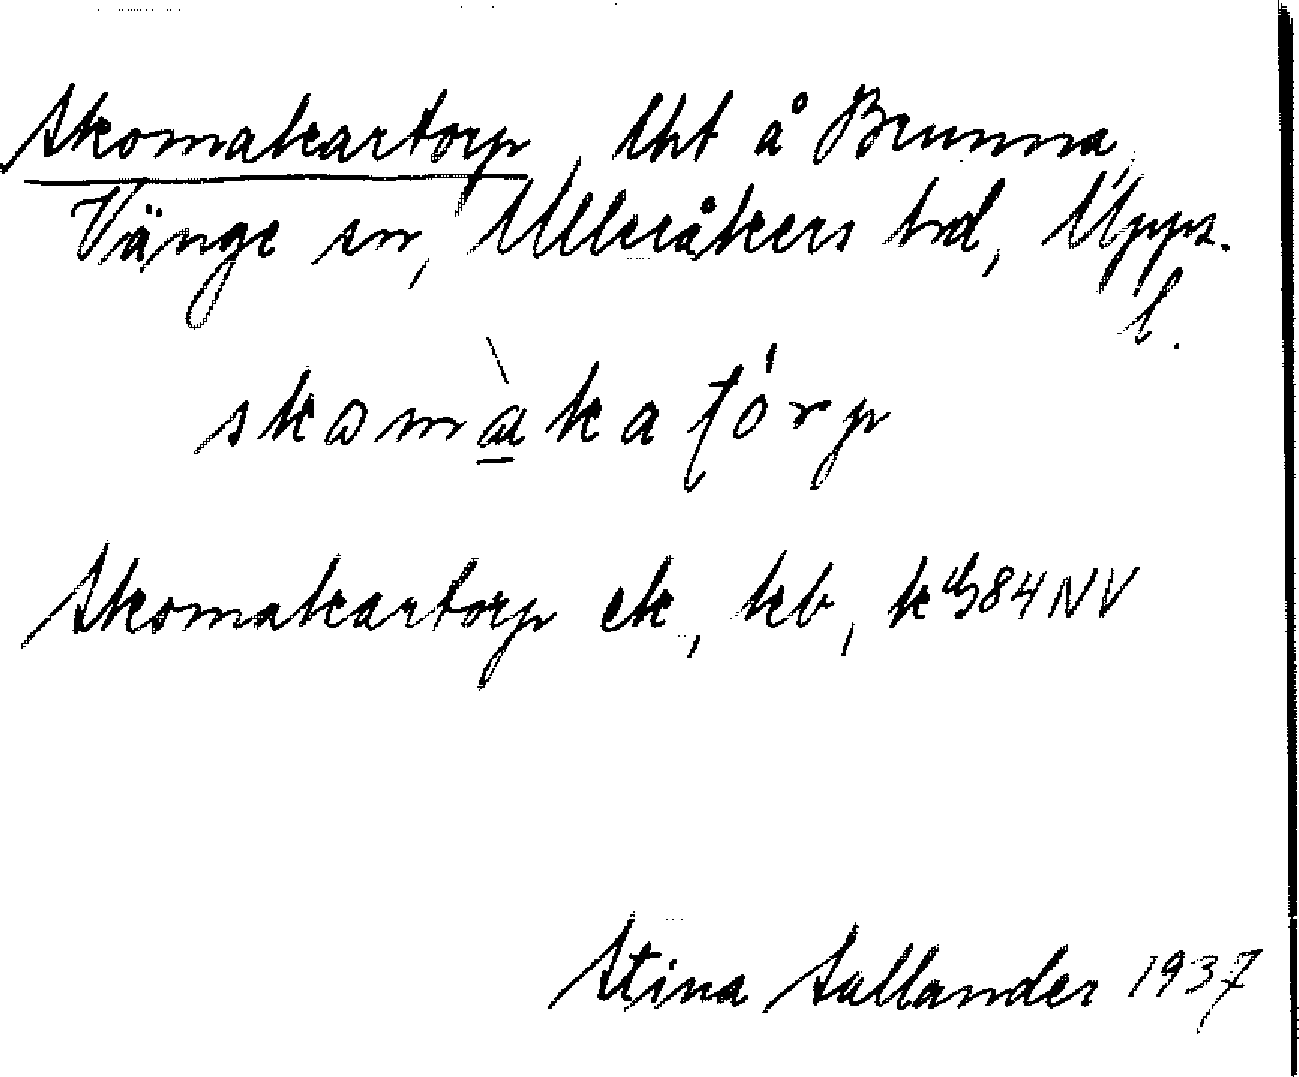 Skomakartorp, lht å Brunna,
Vänge sn, Ulleråkers hd, Upps.
l.
skomàkatórp
Skomakartorp ek, kb, k 84 NV
Stina Sallander 1937